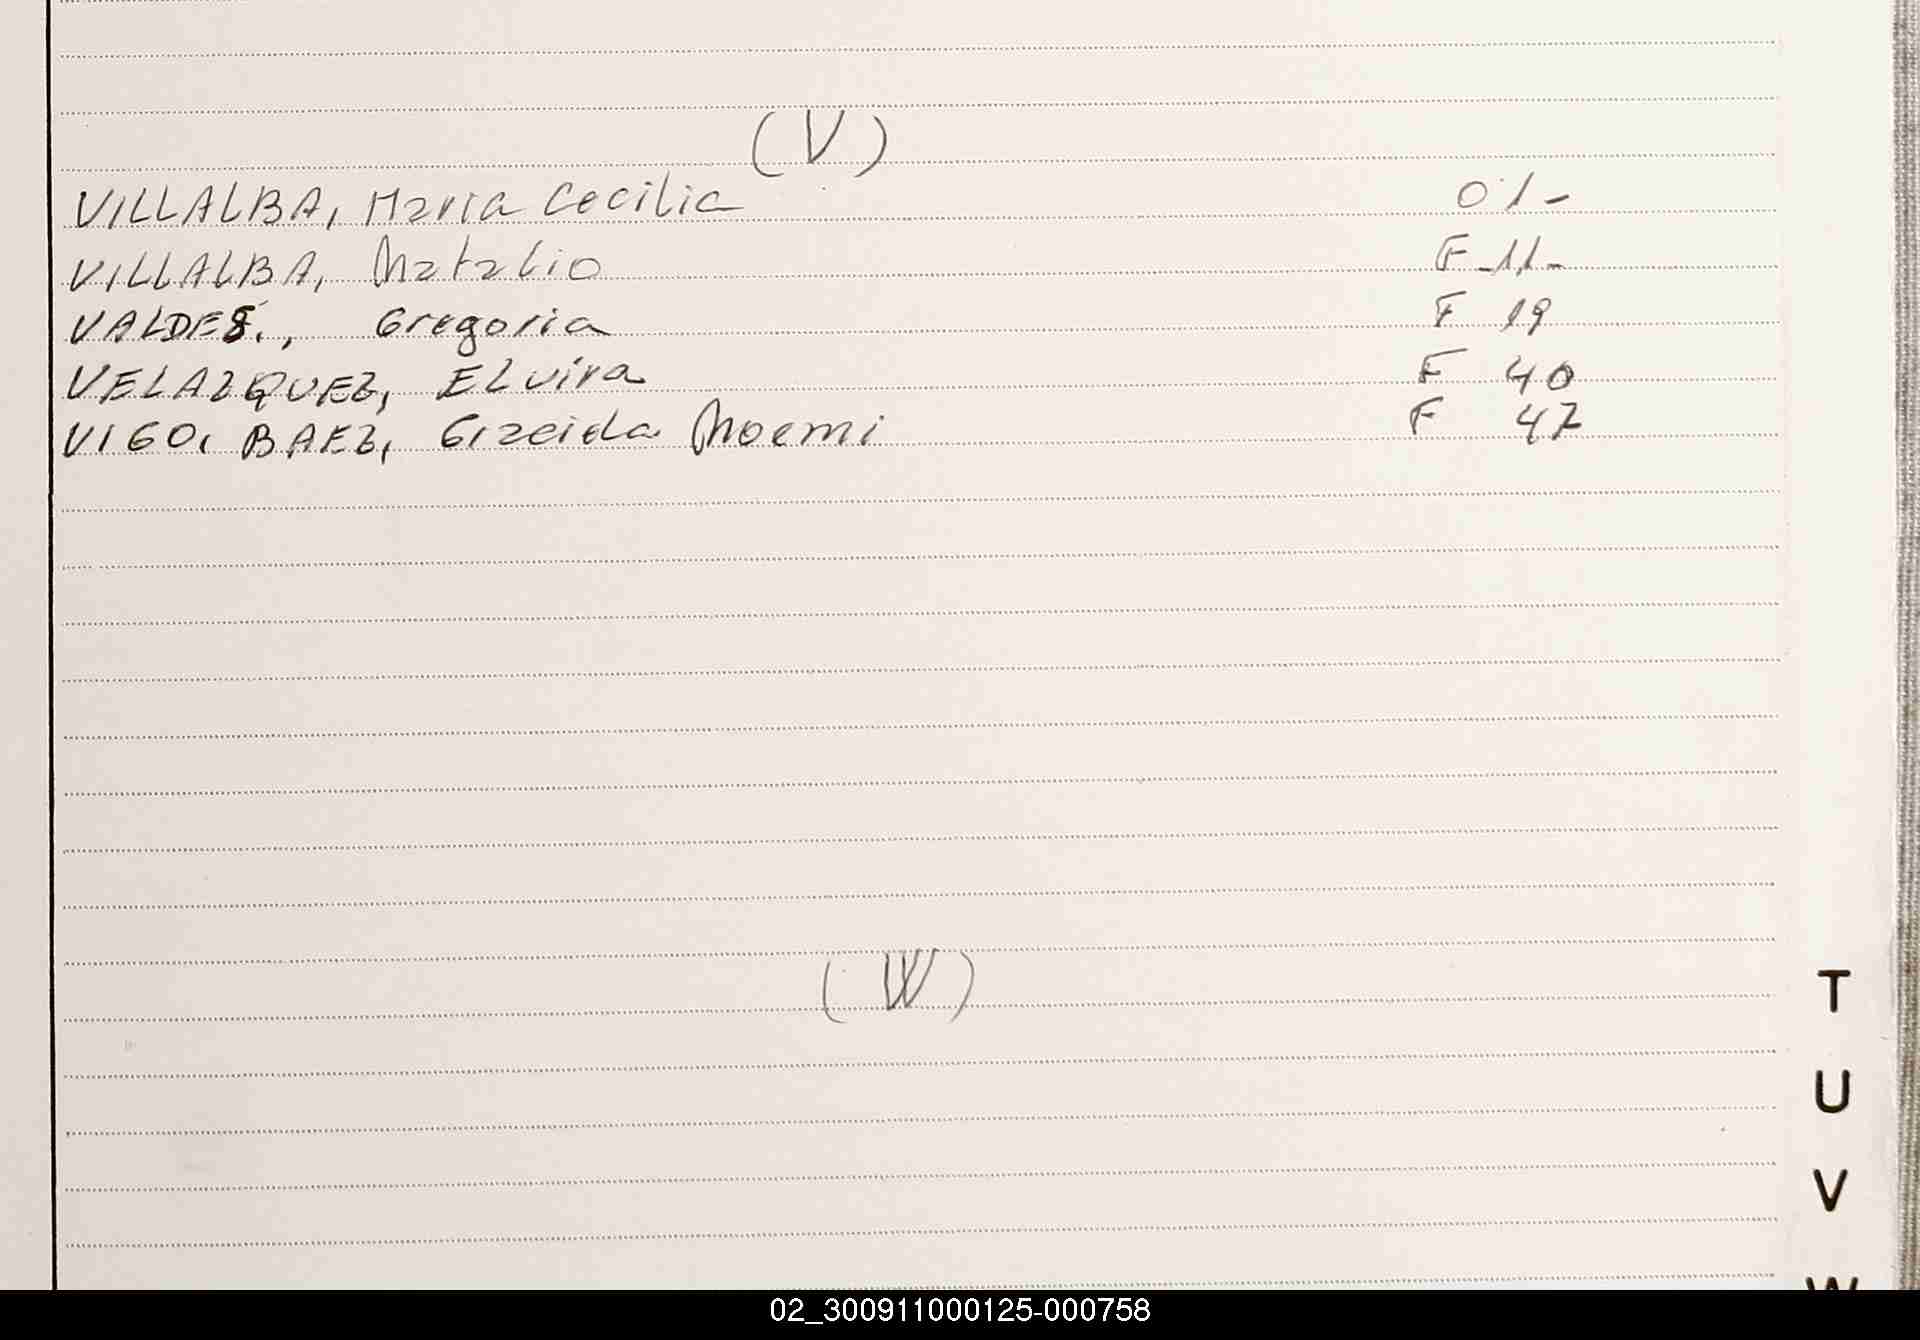 (V)
VILLALBA, Maria Cecilia 01-
VILLALBA, Natalio F-11-
VALDES., Gregoria F 19
VELAZQUEZ, ELvira F 40
VIGO, BAEZ, Noemi F 47
(W)
T
U
V
W
02_300911000125-000758